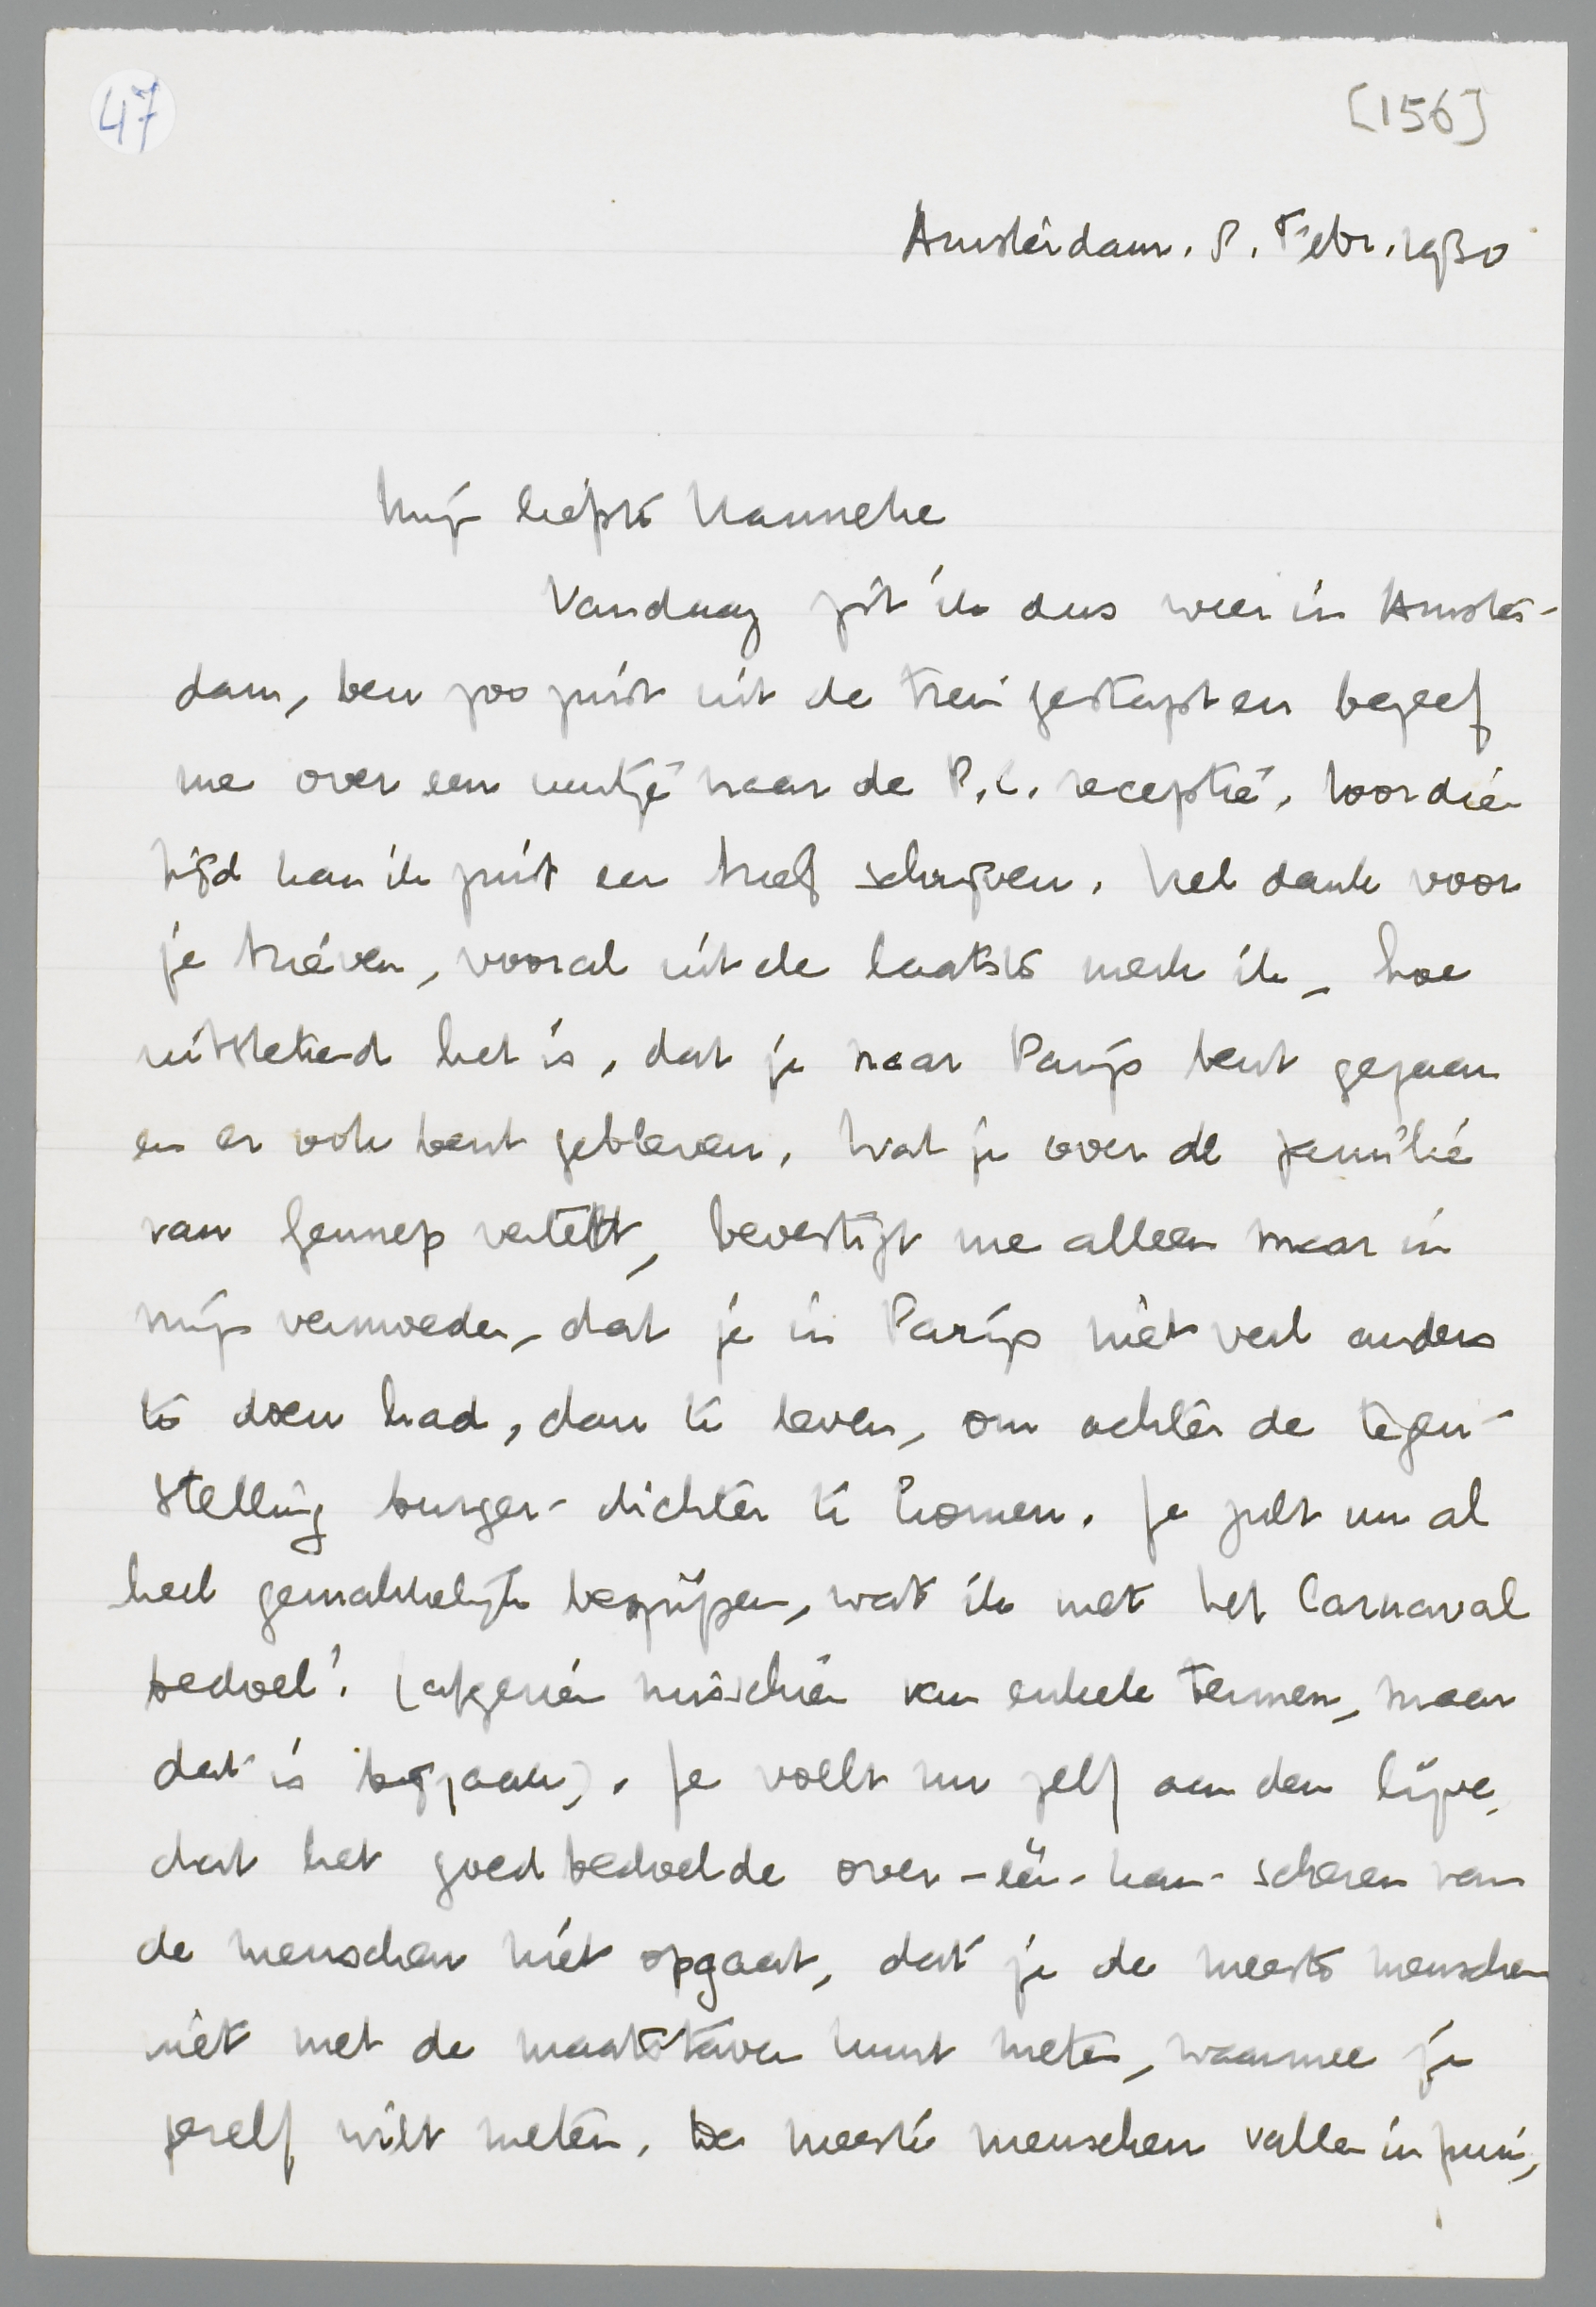 47
[156]
Amsterdam. 8. Febr. 1930
Mijn liefste Hanneke
Vandaag zit ik dus weer in Amster-
dam, ben zoo juist uit de trein gestapt en begeef
me over een uurtje naar de P.C. receptie. Voor dien
tijd kan ik juist een brief schrijven. Veel dank voor
je brieven, vooral uit de laatste merk ik, hoe
uitstekend het is, dat je naar Parijs bent gegaan
en er ook bent gebleven. Wat je over de familie
van Gennep vertelt, bevestigt me alleen maar in
mijn vermoeden, dat je in Parijs niet veel anders
te doen had, dan te leven, om achter de tegen-
stelling burger-dichter te komen. Je zult nu al
heel gemakkelijk begrijpen, wat ik met het Carnaval
bedoel! (afgezien misschien van enkele termen, maar
dat is bijzaak). Je voelt nu zelf aan den lijve,
dat het goedbedoelde over-één-kam-scheren van
de menschen niet opgaat, dat je de meeste menschen
niet met de maatstaven kunt meten, waarmee je
jezelf wilt meten. De meeste menschen vallen in puin,